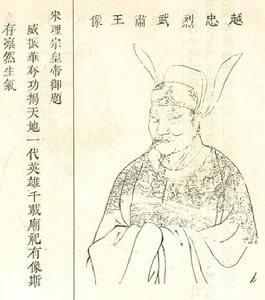 越忠烈武肅王像
宋理宗皇帝御題
威振華夷功揚天地一代英雄千載廟祀有像斯
存凜然生氣